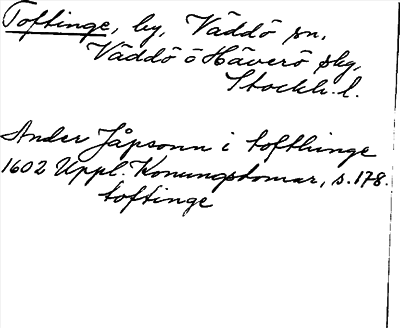 Toftinge, by, Väddö sn,
Väddö o Häverö skg,
Stockh. l.
Ander Jåpsonn i tofthinge
1602 Uppl. Konungsdomar, s. 178.
toftinge